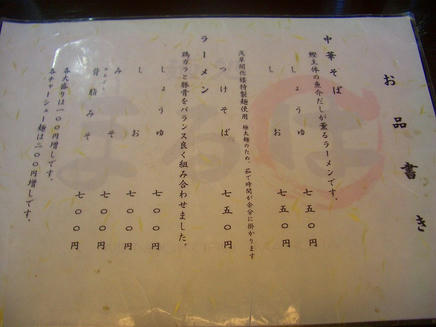 お品書き
中華そば
鰹主体の魚介だしが薫るラーメンです。
しょうゆ 七五〇円
しお 七五〇円
つけそば 七五〇円
浅草開化楼特製麺使用 極太麺のため、茹で時間が余分に掛かります
ラーメン
鶏ガラと豚骨をバランス良く組み合わせました。
しょうゆ 七〇〇円
しお 七〇〇円
みそ 七〇〇円
背脂みそ 七〇〇円
各大盛りは一〇〇円増しです。
各チャーシュー麺は二〇〇円増しです。